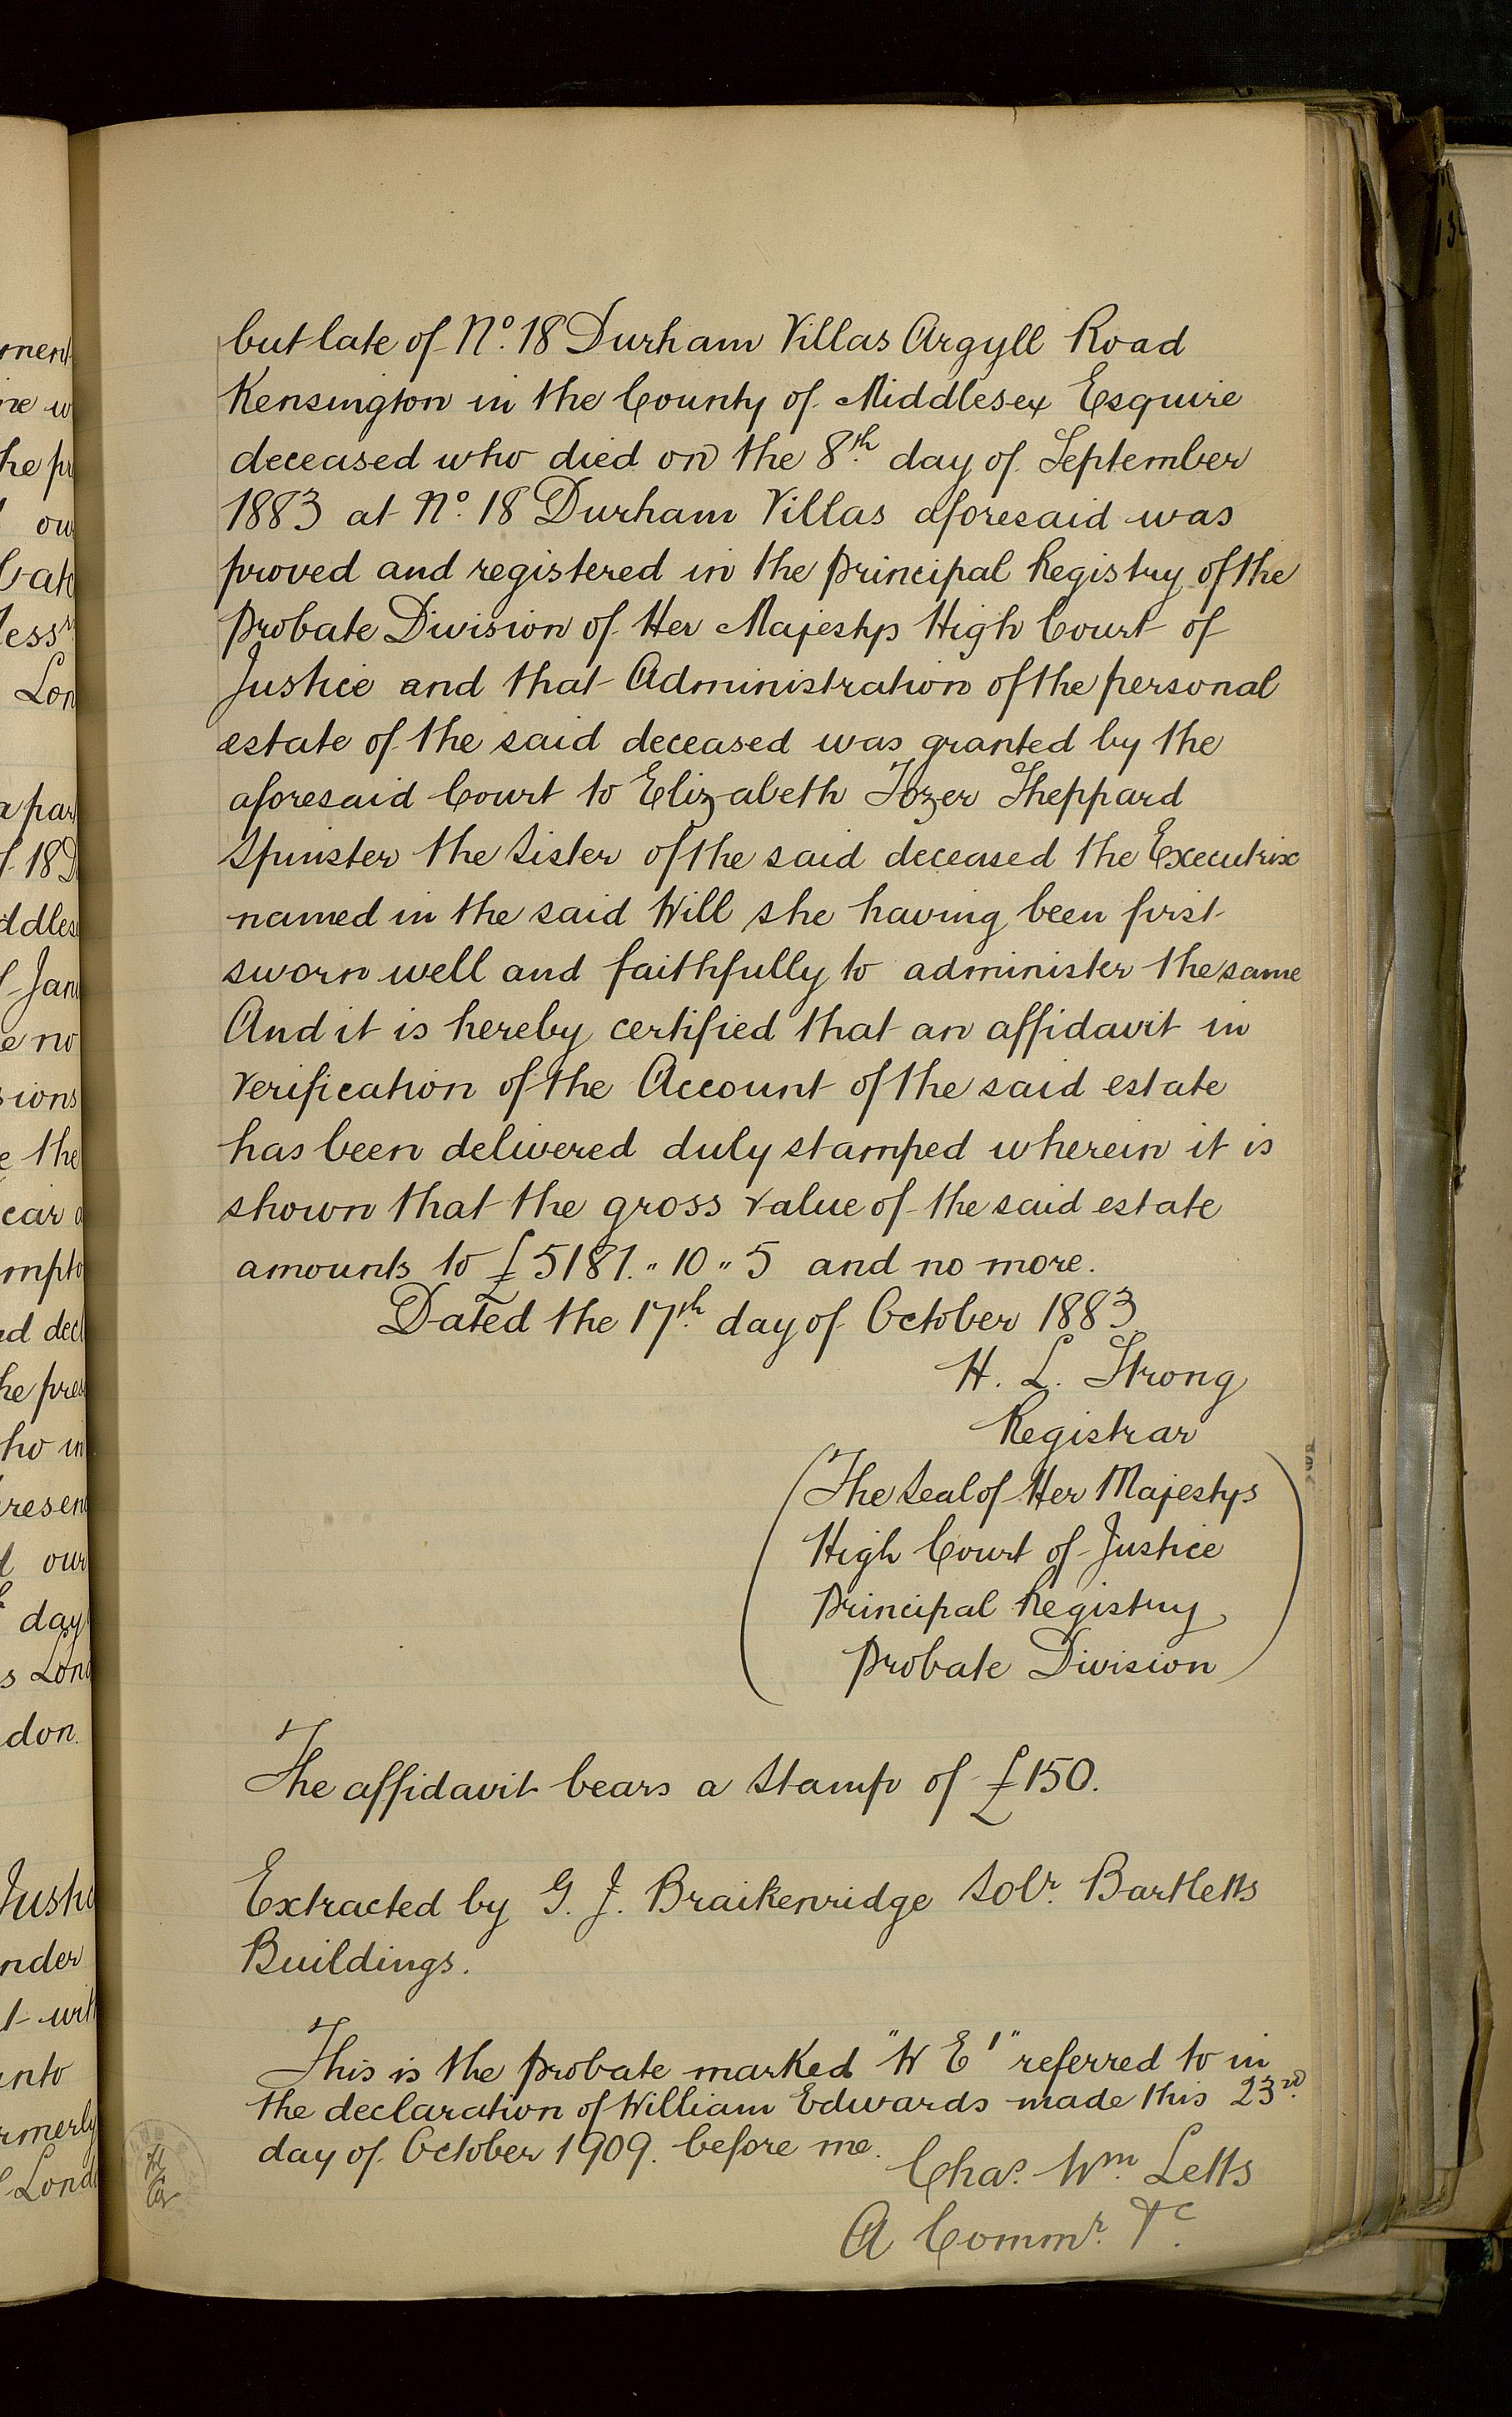 but late of No. 18 Durham Villas Argyll Road
Kensington in the County of Middlesex Esquire
deceased who died on the 8th day of September
1883 at No. 18 Durham Villas aforesaid was
proved and registered in the Principal Registry of the
Probate Division of Her Majestys High Court of
Justice and that Administration of the personal
estate of the said deceased was granted by the
aforesaid Court to Elizabeth Tozer Sheppard
Spinster the Sister of the said deceased the Executrix
named in the said Will she having been first
sworn well and faithfully to administer the same
And it is hereby certified that an affidavit in
verification of the Account of the said estate
has been delivered duly stamped wherein it is
shown that the gross value of the said estate
amounts to £5181.〃10〃5 and no more.
Dated the 17th day of October 1883
H. L. Strong
Registrar
(The Seal of Her Majestys
High Court of Justice
Principal Registry
Probate Division)
The affidavit bears a Stamp of £150.
Extracted by G. J. Braikenridge Solr. Bartletts
Buildings.
This is the Probate marked "W E 1" referred to in
the declaration of William Edwards made this 23rd
day of October 1909. before me.
Chas. Wm. Letts
A Commr. &c.